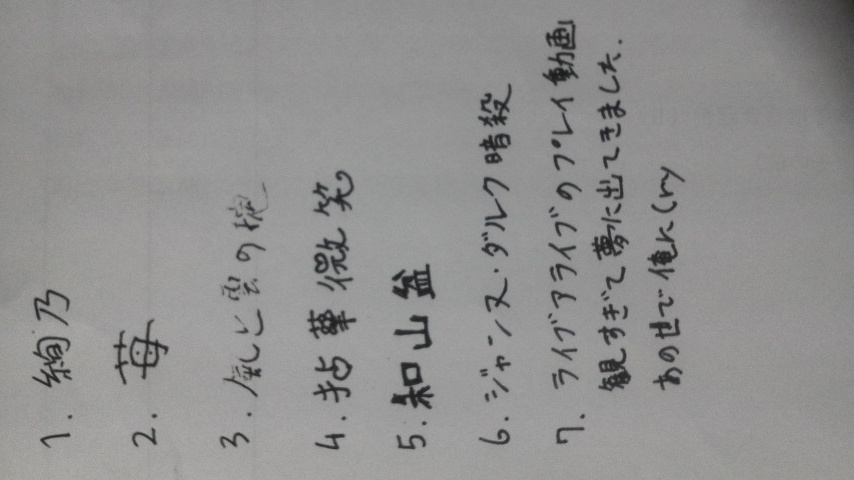 1. 絢乃
2. 苺
3. 風と雲の掟
4. 拈華微笑
5. 知山盆
6. ジャンヌ・ダルク暗殺
7. ライブアライブのプレイ動画
観すぎて夢に出てきました.
あの世で俺に(ry